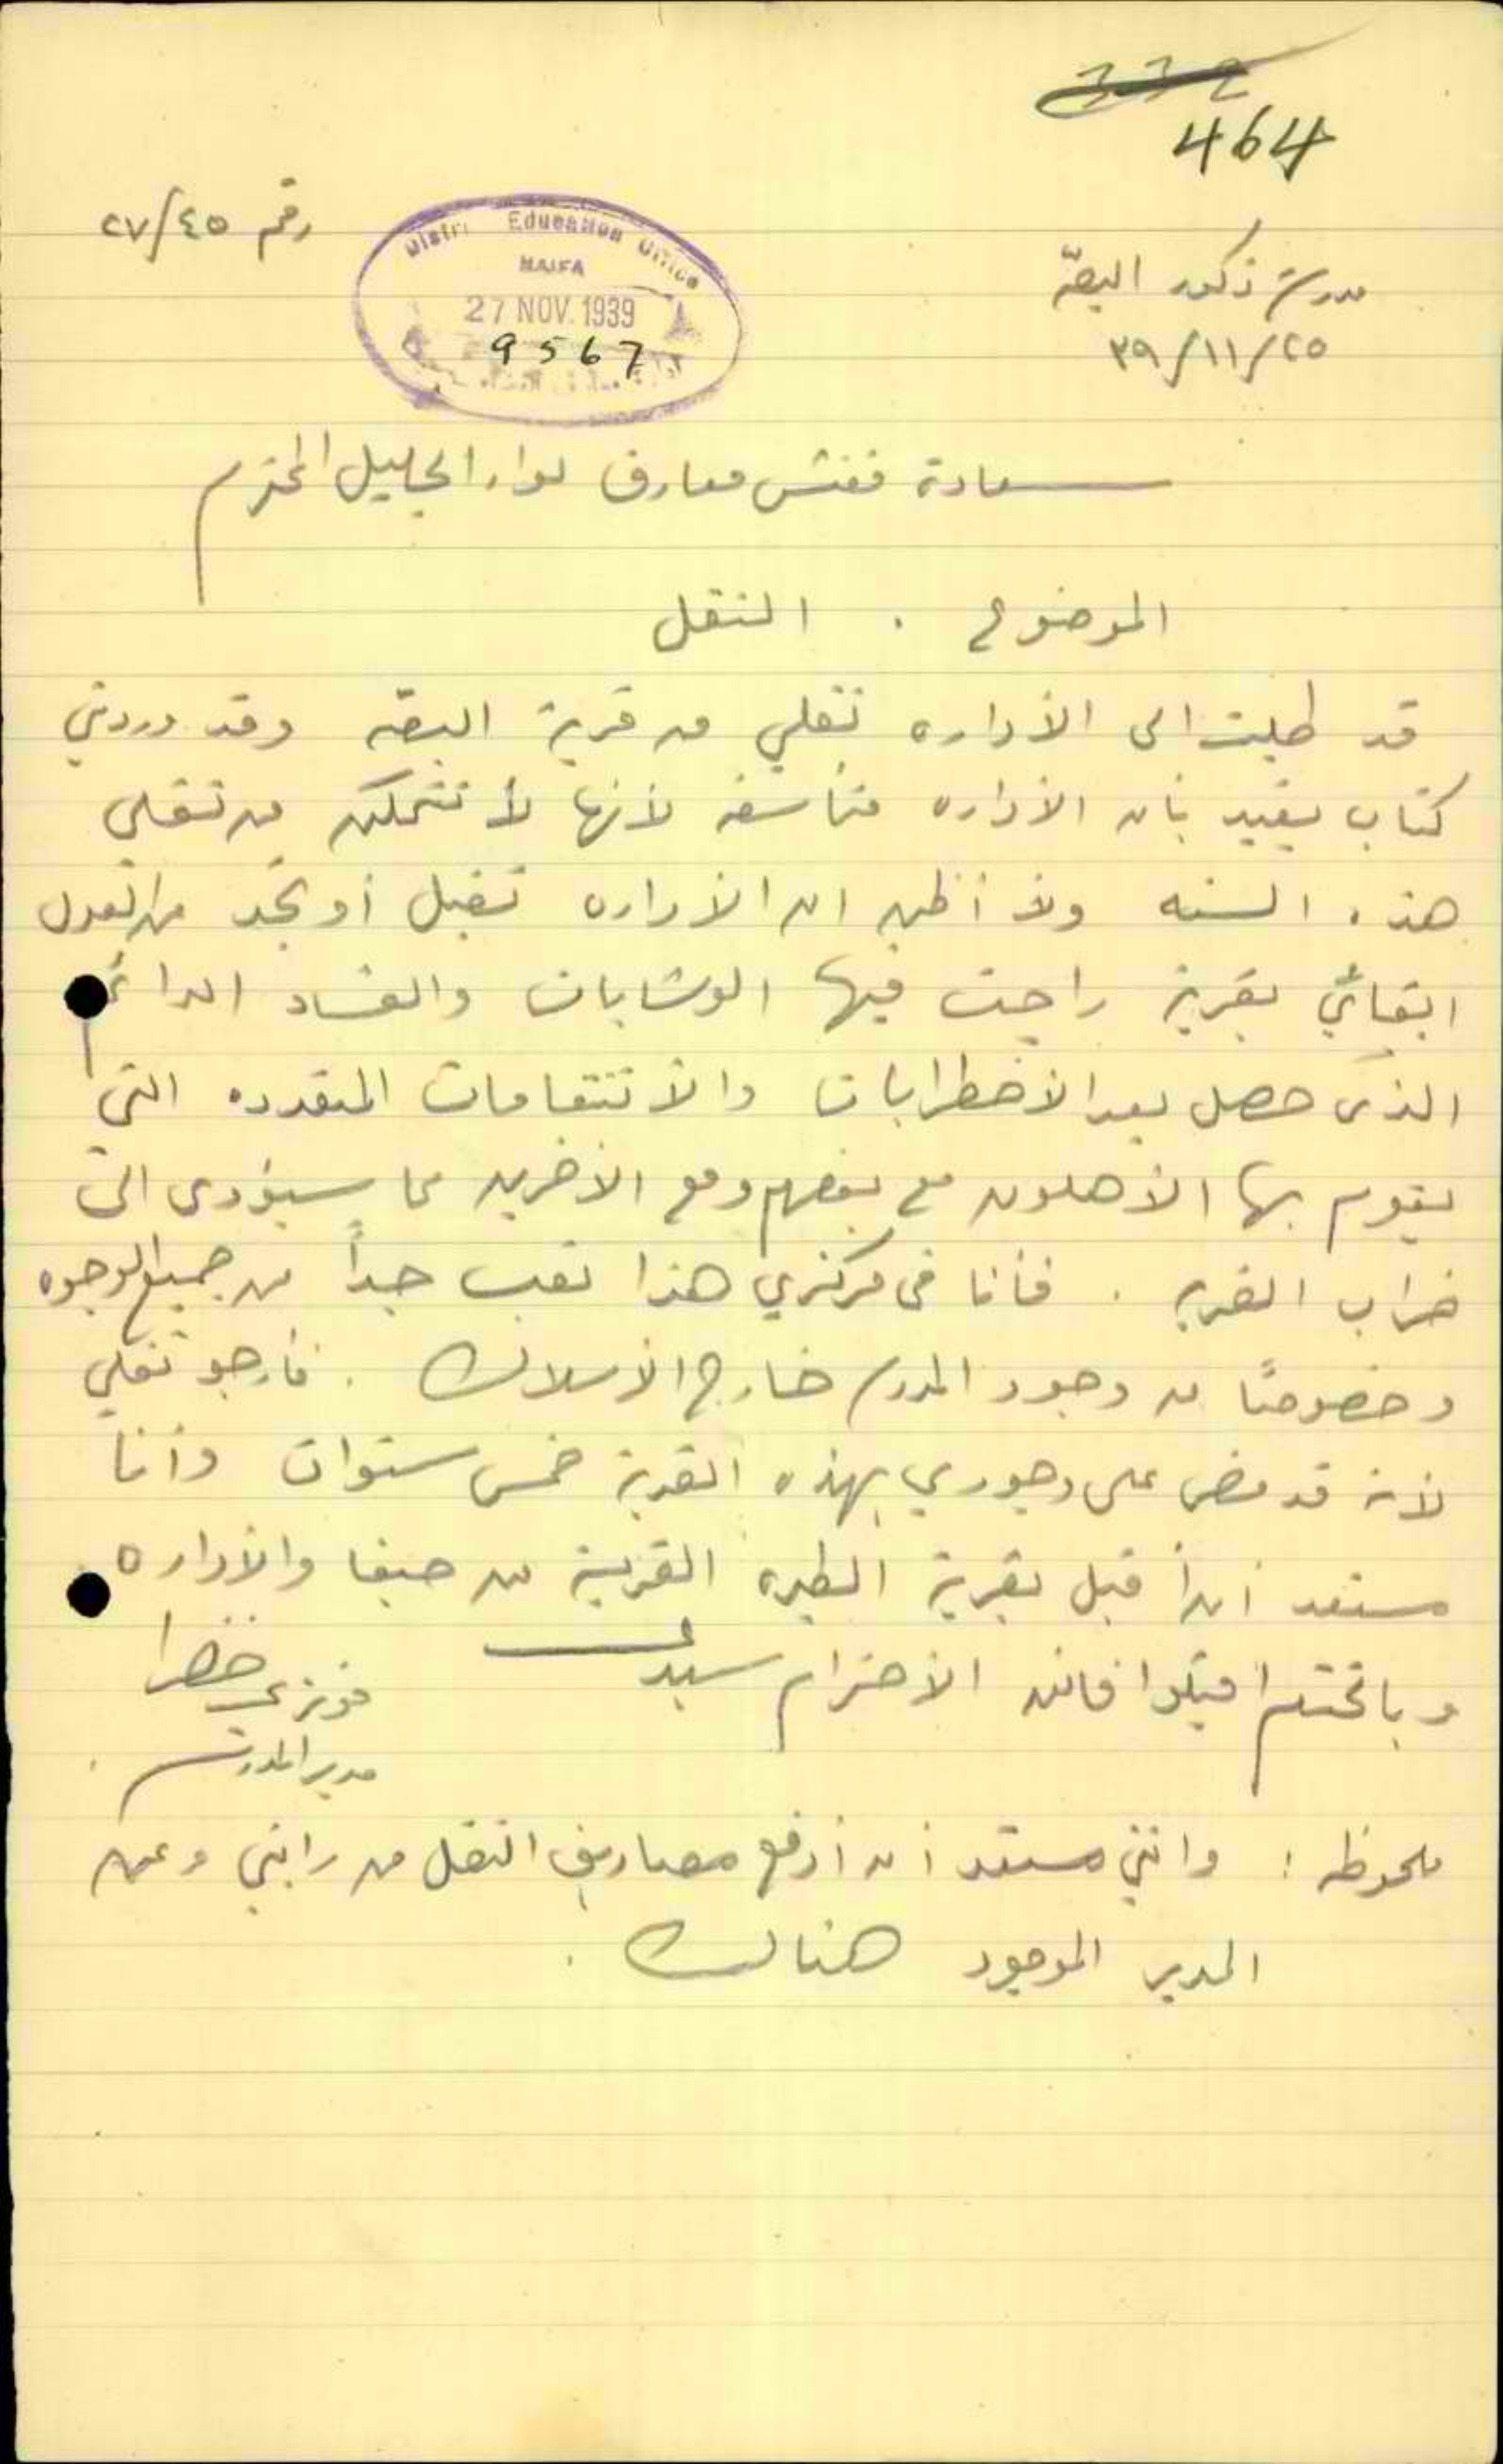 332
464
رقم ٢٧/٤٥
District Education Office
HAIFA
27 NOV. 1939
9567
مدرسة ذكور البصّه
٣٩/١١/٢٥
سعادة مفتش معارف لواء الجليل المحترم
الموضوع . النقل
قد طلبت الى الأداره نقلي من قرية البصّه وقد وردني
كتاب يفيد بأن الأداره متأسفه لأنها لا تتمكن من نقلي
هذه السنه ولا أظن ان الأداره تقبل أو تجد من العدل
ابقائي بقرية راجت فيها الوشايات والفساد الدائم
الذى حصل بعد الأضطرابات والأنتقامات المتعدده التي
يقوم بها الأهلون مع بعضهم ومع الأخرين مما سيؤدى الى
خراب القريه . فأنا في مركزي هذا تعب جداً من جميع الوجوه
وخصوصاً من وجود المدرسه خارج الأسلاك . فأرجو نقلي
لأنه قد مضى على وجودي بهذه القرية خمس سنوات وأنا
مستعد أن أقبل بقرية الطيره القريبة من حيفا والأداره
وبالختام اقبلوا فائق الأحترام سيدى
فوزي خضرا
مدير المدرسه
ملحوظه : وانني مستعد أن أدفع مصاريف النقل من راتبي وعن
المدير الموجود هنالك .